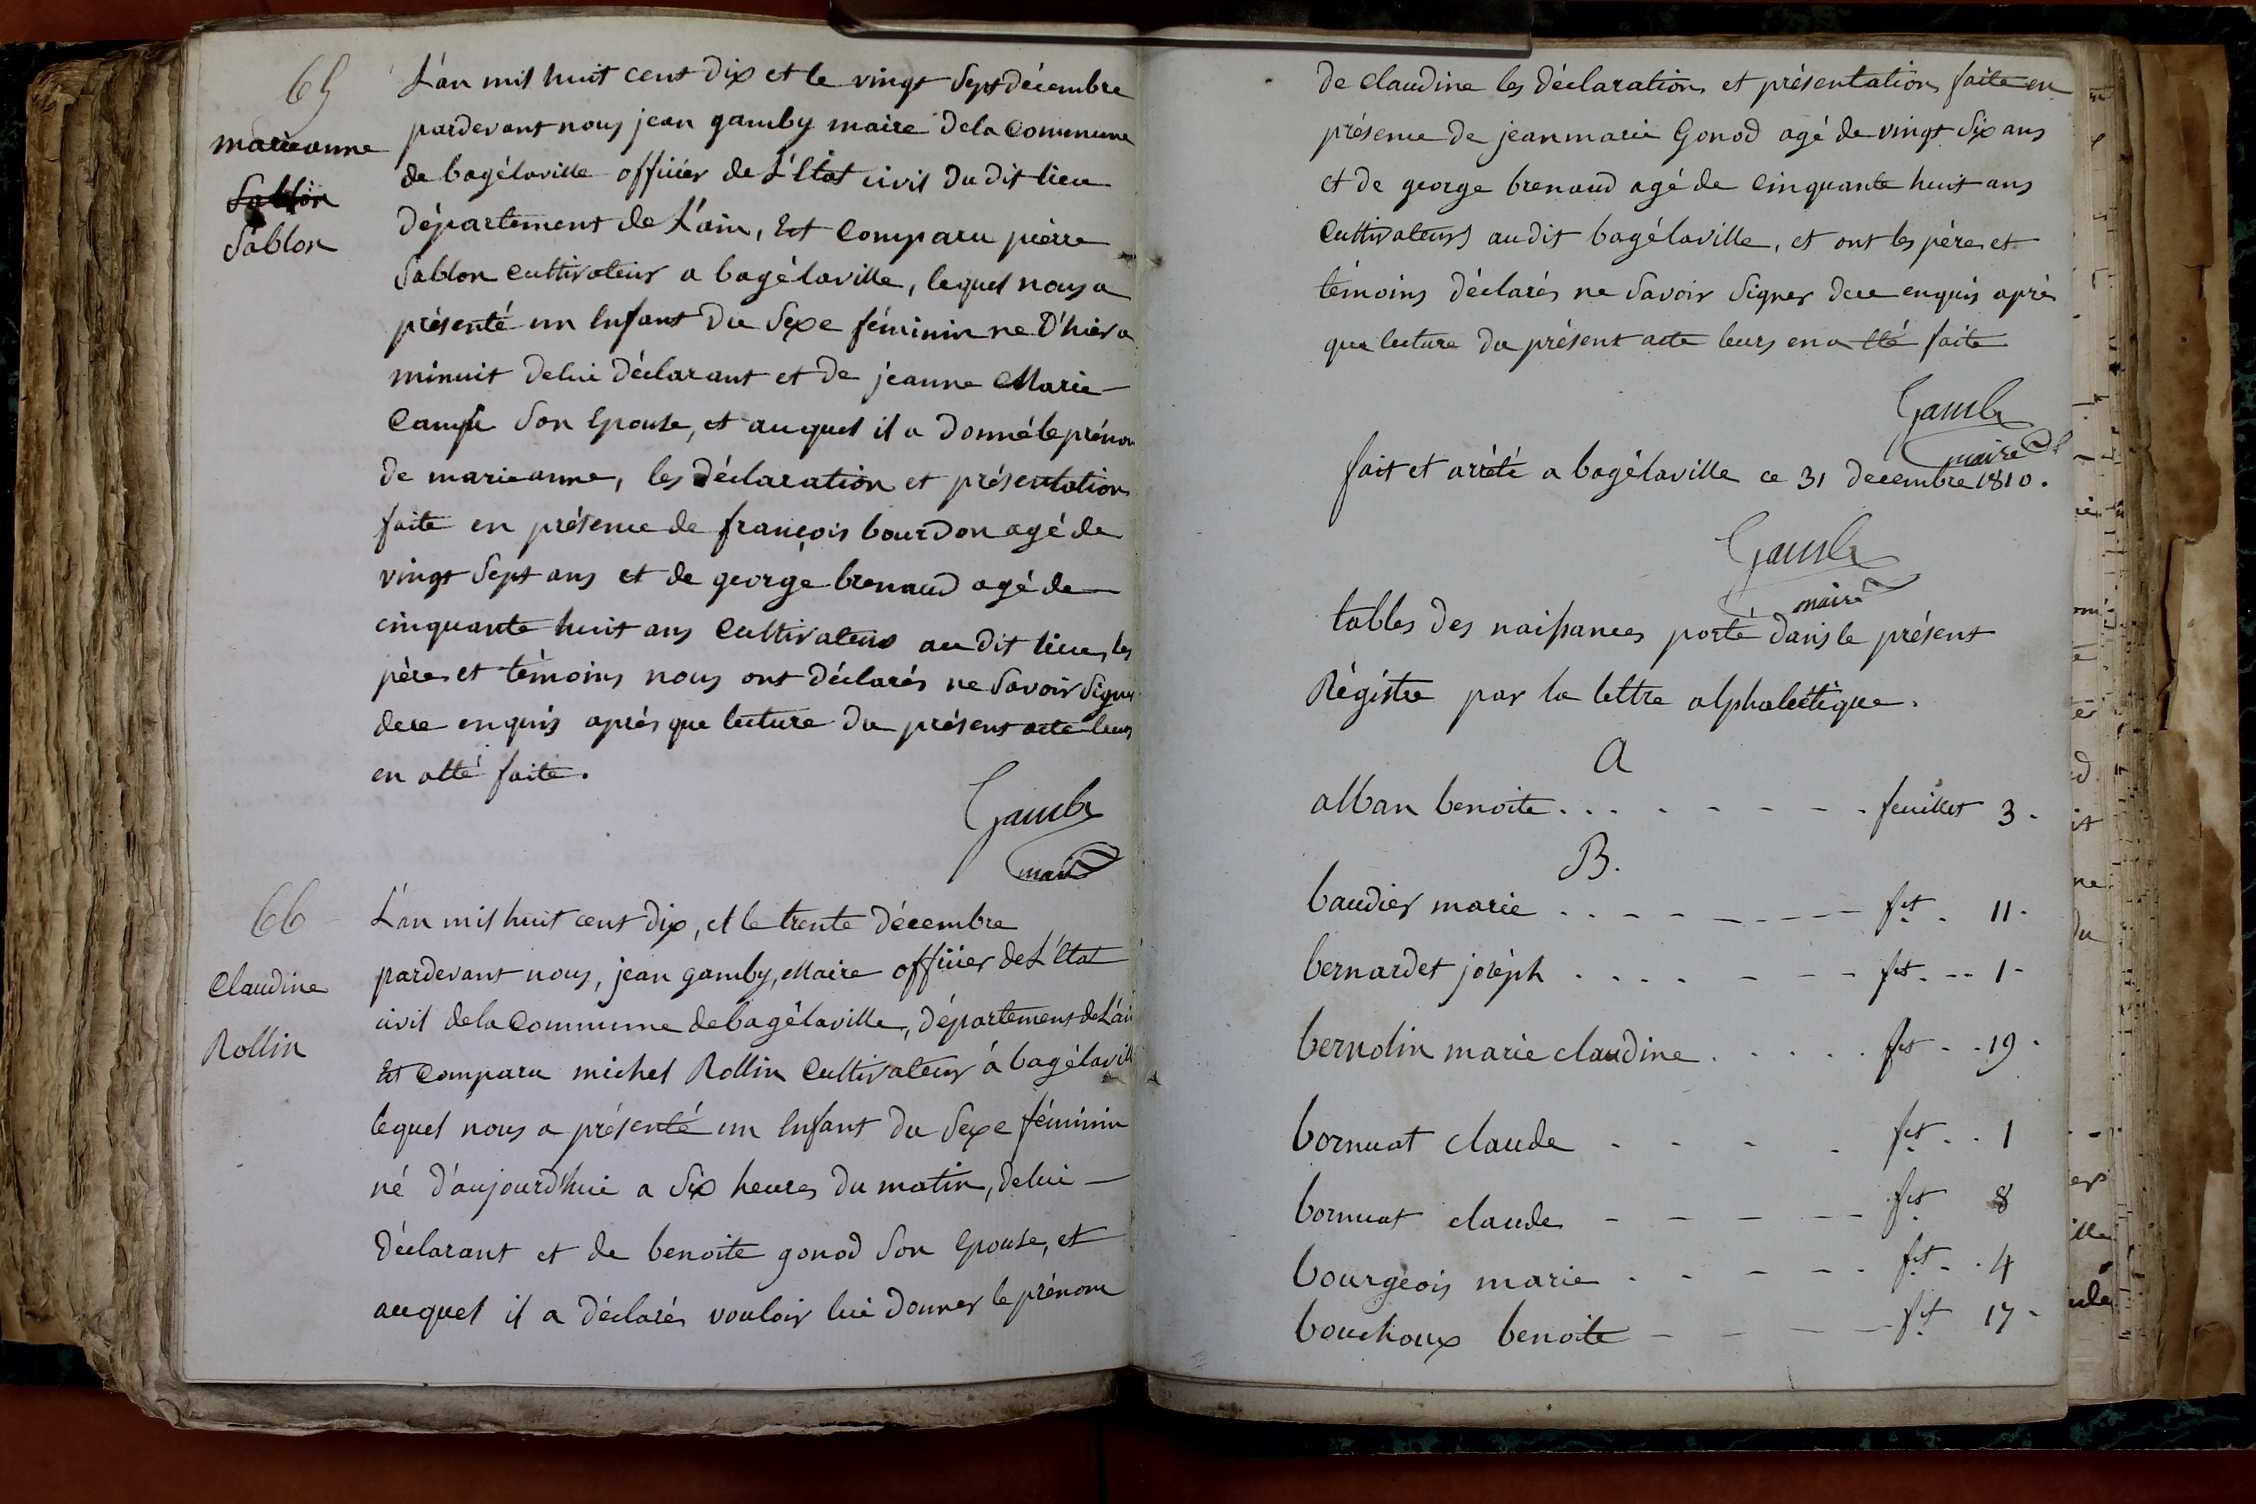 65
marieanne
Sablon
Sablon
L'an mil huit cent dix et le vingt sept décembre
pardevant nous jean gamby maire de la commune
de bagélaville officier de L'Etat civil du dit lieu
département de L'ain, Est comparu pierre
Sablon cultivateur a bagélaville, lequel nous a
présenté un Enfant du Sexe féminin ne D'hier a
minuit de lui déclarant et de jeanne Marie
son Epouse, et auquel il a donné le prénom
de marieanne, les déclaration et présentation
faite en présence de françois bourdon agé de
vingt sept ans et de george brenaud agé de
cinquante huit ans cultivateurs au dit lieu, les
père et témoins nous ont déclarés ne savoir signer
dece enquis après que lecture du présent acte leurs
en a été faite.
Gamby
maire
66
Claudine
Rollin
L'an mil huit cent dix, et le trente décembre
pardevant nous, jean gamby, Maire officier de L'Etat
civil de la commune de bagélaville, département de L'ain
Est comparu michel Rollin cultivateur à bagélaville
lequel nous a présenté un Enfant du Sexe féminin
né d'aujourd'hui a six heures du matin, de lui
déclarant et de benoite gonod son Epouse, et
auquel il a déclarés vouloir lui donner le prénom
de claudine les déclaration et présentation faite en
présence de jeanmarie Gonod agé de vingt six ans
et de george brenaud agé de cinquante huit ans
cultivateurs audit bagélaville, et ont les père et
témoins déclarés ne savoir signer dece enquis après
que lecture du présent acte leurs en a été faite
Gamby
maire
fait et arrêté a bagélaville ce 31 decembre 1810.
Gamby
maire
tables des naissances porté dans le présent
Régistre par la lettre alphabétique.
A
alban benoite . . . - - - - feuillet 3.
B.
baudier marie . . - - - - - - fet. 11.
bernardet joséph . . . . - - - fet. -- 1-
bernolin marie claudine . . . . . fet - . 19.
bornuat claude - - - . fet . . 1
bornuat claude - - - - - fet 8
bourgeois marie . - - - . fet - . 4
bouchoux benoite - - - - fet 17-